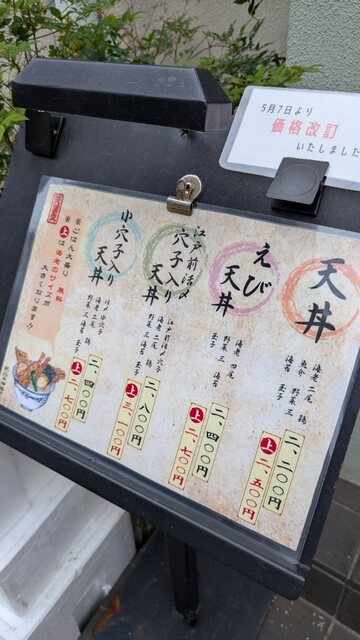 5月7日より
価格改訂
いたしました
天丼
海老 二尾 鶏
魚介 野菜 三
海苔 玉子
二、二〇〇円
上 二、五〇〇円
えび
天丼
海老 四尾
野菜 三 海苔
玉子
二、四〇〇円
上 二、七〇〇円
江戸前活〆
穴子入り
天丼
江戸前活〆穴子
海老 二尾 鶏
野菜 三 海苔 玉子
二、八〇〇円
上 三、一〇〇円
小穴子入り
天丼
活〆小穴子
海老 二尾 鶏
野菜 三 海苔 玉子
二、四〇〇円
上 二、七〇〇円
ごはん大盛り 無料
上は 海老のサイズが
大きくなります!!